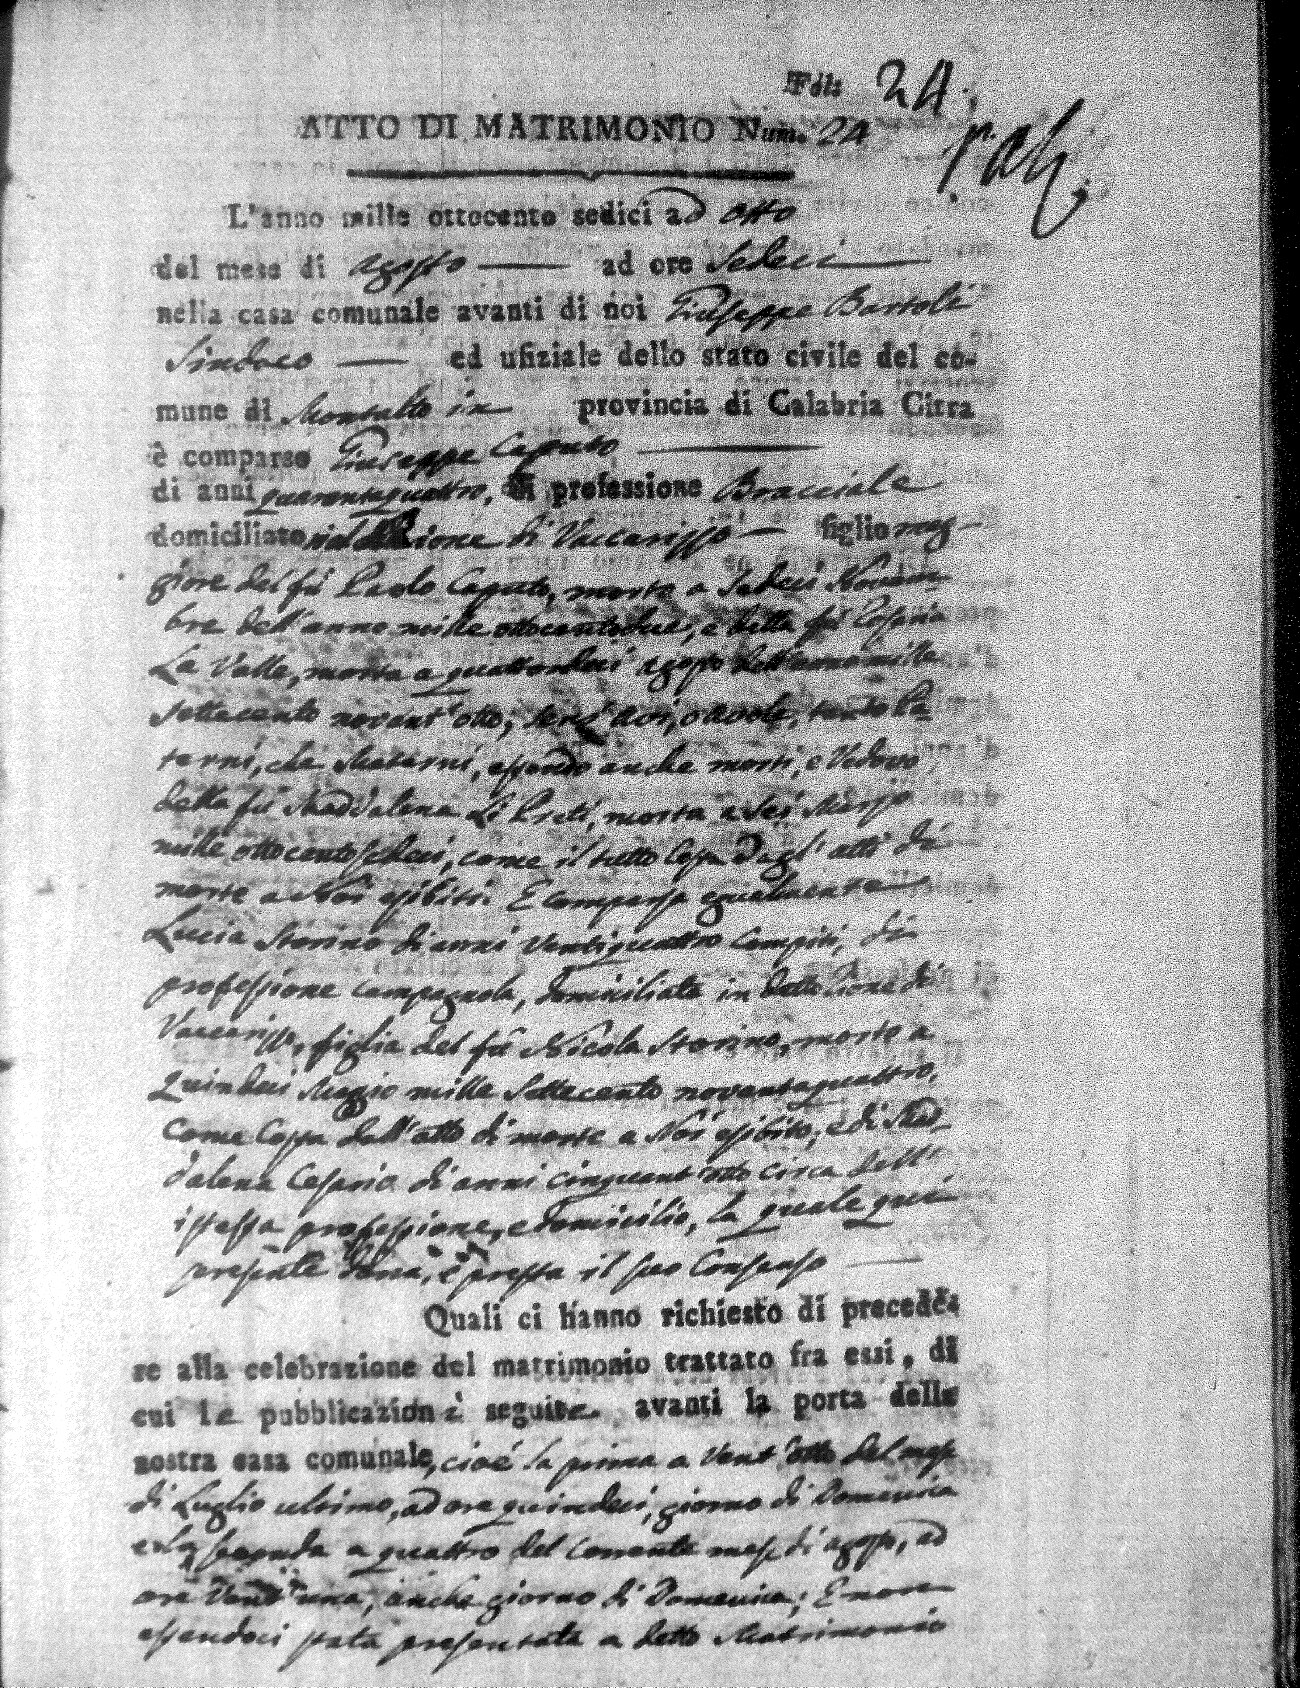 Fol: 24.
ATTO DI MATRIMONIO Num. 24
L'anno mille ottocento sedici ad otto
del mese di agosto ad ore Sedeci
nella casa comunale avanti di noi Giuseppe Bartoli
Sindaco ed ufiziale dello stato civile del co-
mune di Montalto in provincia di Calabria Citra
è comparso Giuseppe Caputo
di anni quarantaquattro, di professione Bracciale
domiciliato nel Rione di Vaccarizzo figlio mag-
giore del fù Paolo Caputo, morto a Sedeci Novem-
bre dell'anno mille ottocentodue, e della fù Rosaria
La Valle, morta a quattordeci agosto dell'anno mille
settecento novant'otto, senz'avi, o avole, tanto Pa-
terni, che Materni, essendo anche morti, e Vedovo
della fù Maddalena Li Preti, morta a Sei Marzo
mille ottocentosedeci, come il tutto Costa dagl'atti di
morte a Noi esibiti. E comparsa egualmente
Lucia Storino di anni Ventiquattro Compiti, di
professione campagnola, domiciliata in detto Rione di
Vaccarizzo, figlia del fù Nicola Storino, morto a
quindeci Maggio mille Settecento novantaquattro,
come Costa dall'atto di morte a Noi esibito, e di Mad-
dalena Cesario di anni cinquant'otto circa dell'
istessa professione, e domicilio, la quale quì
presente dona, e presta il suo Consenso
Quali ci hanno richiesto di procede-
re alla celebrazione del matrimonio trattato fra essi, di
cui le pubblicazioni seguite avanti la porta della
nostra casa comunale, cioè la prima a Vent'otto del mese
di Luglio ultimo, ad ore quindeci, giorno di Domenica
e La Seconda a quattro del Corrente mese di agosto, ad
ore Vent'una, anche giorno di Domenica; E non
essendoci stata presentata a detto Matrimonio